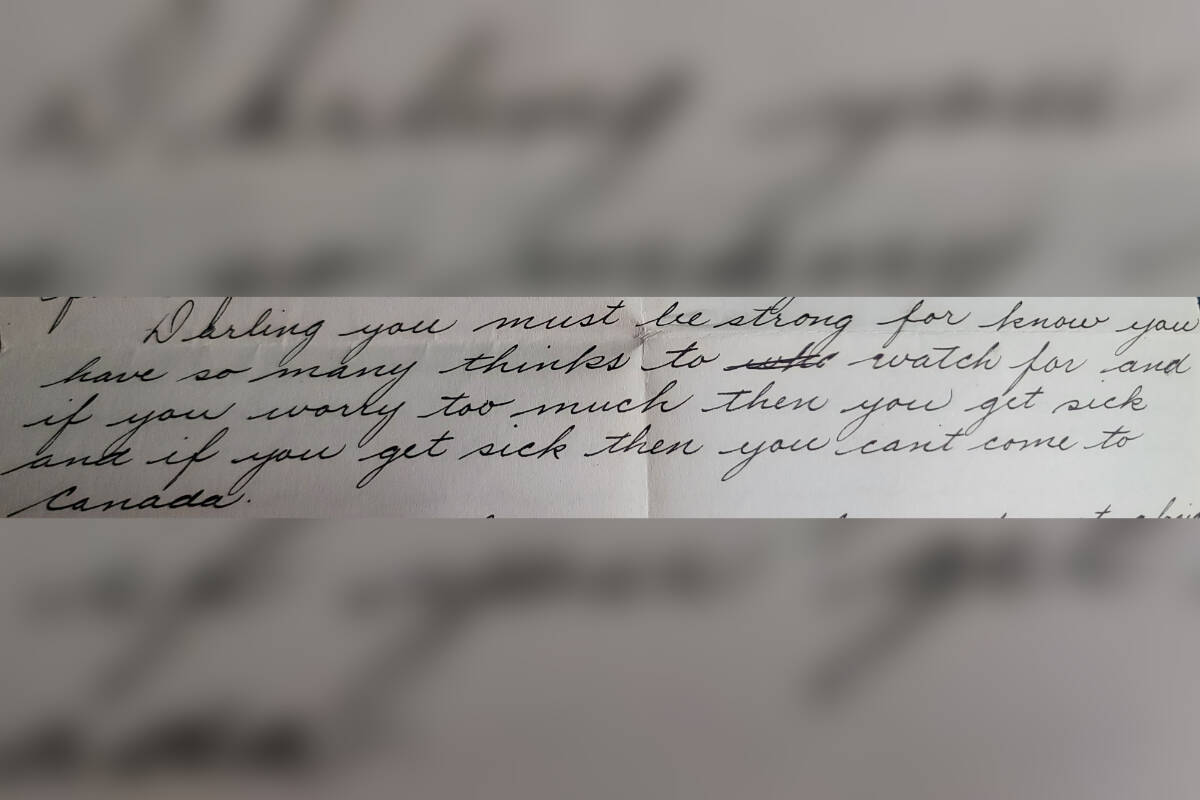 Darling you must be strong for know you
have so many thinks to watch for and
if you worry too much then you get sick
and if you get sick then you can't come to
Canada.